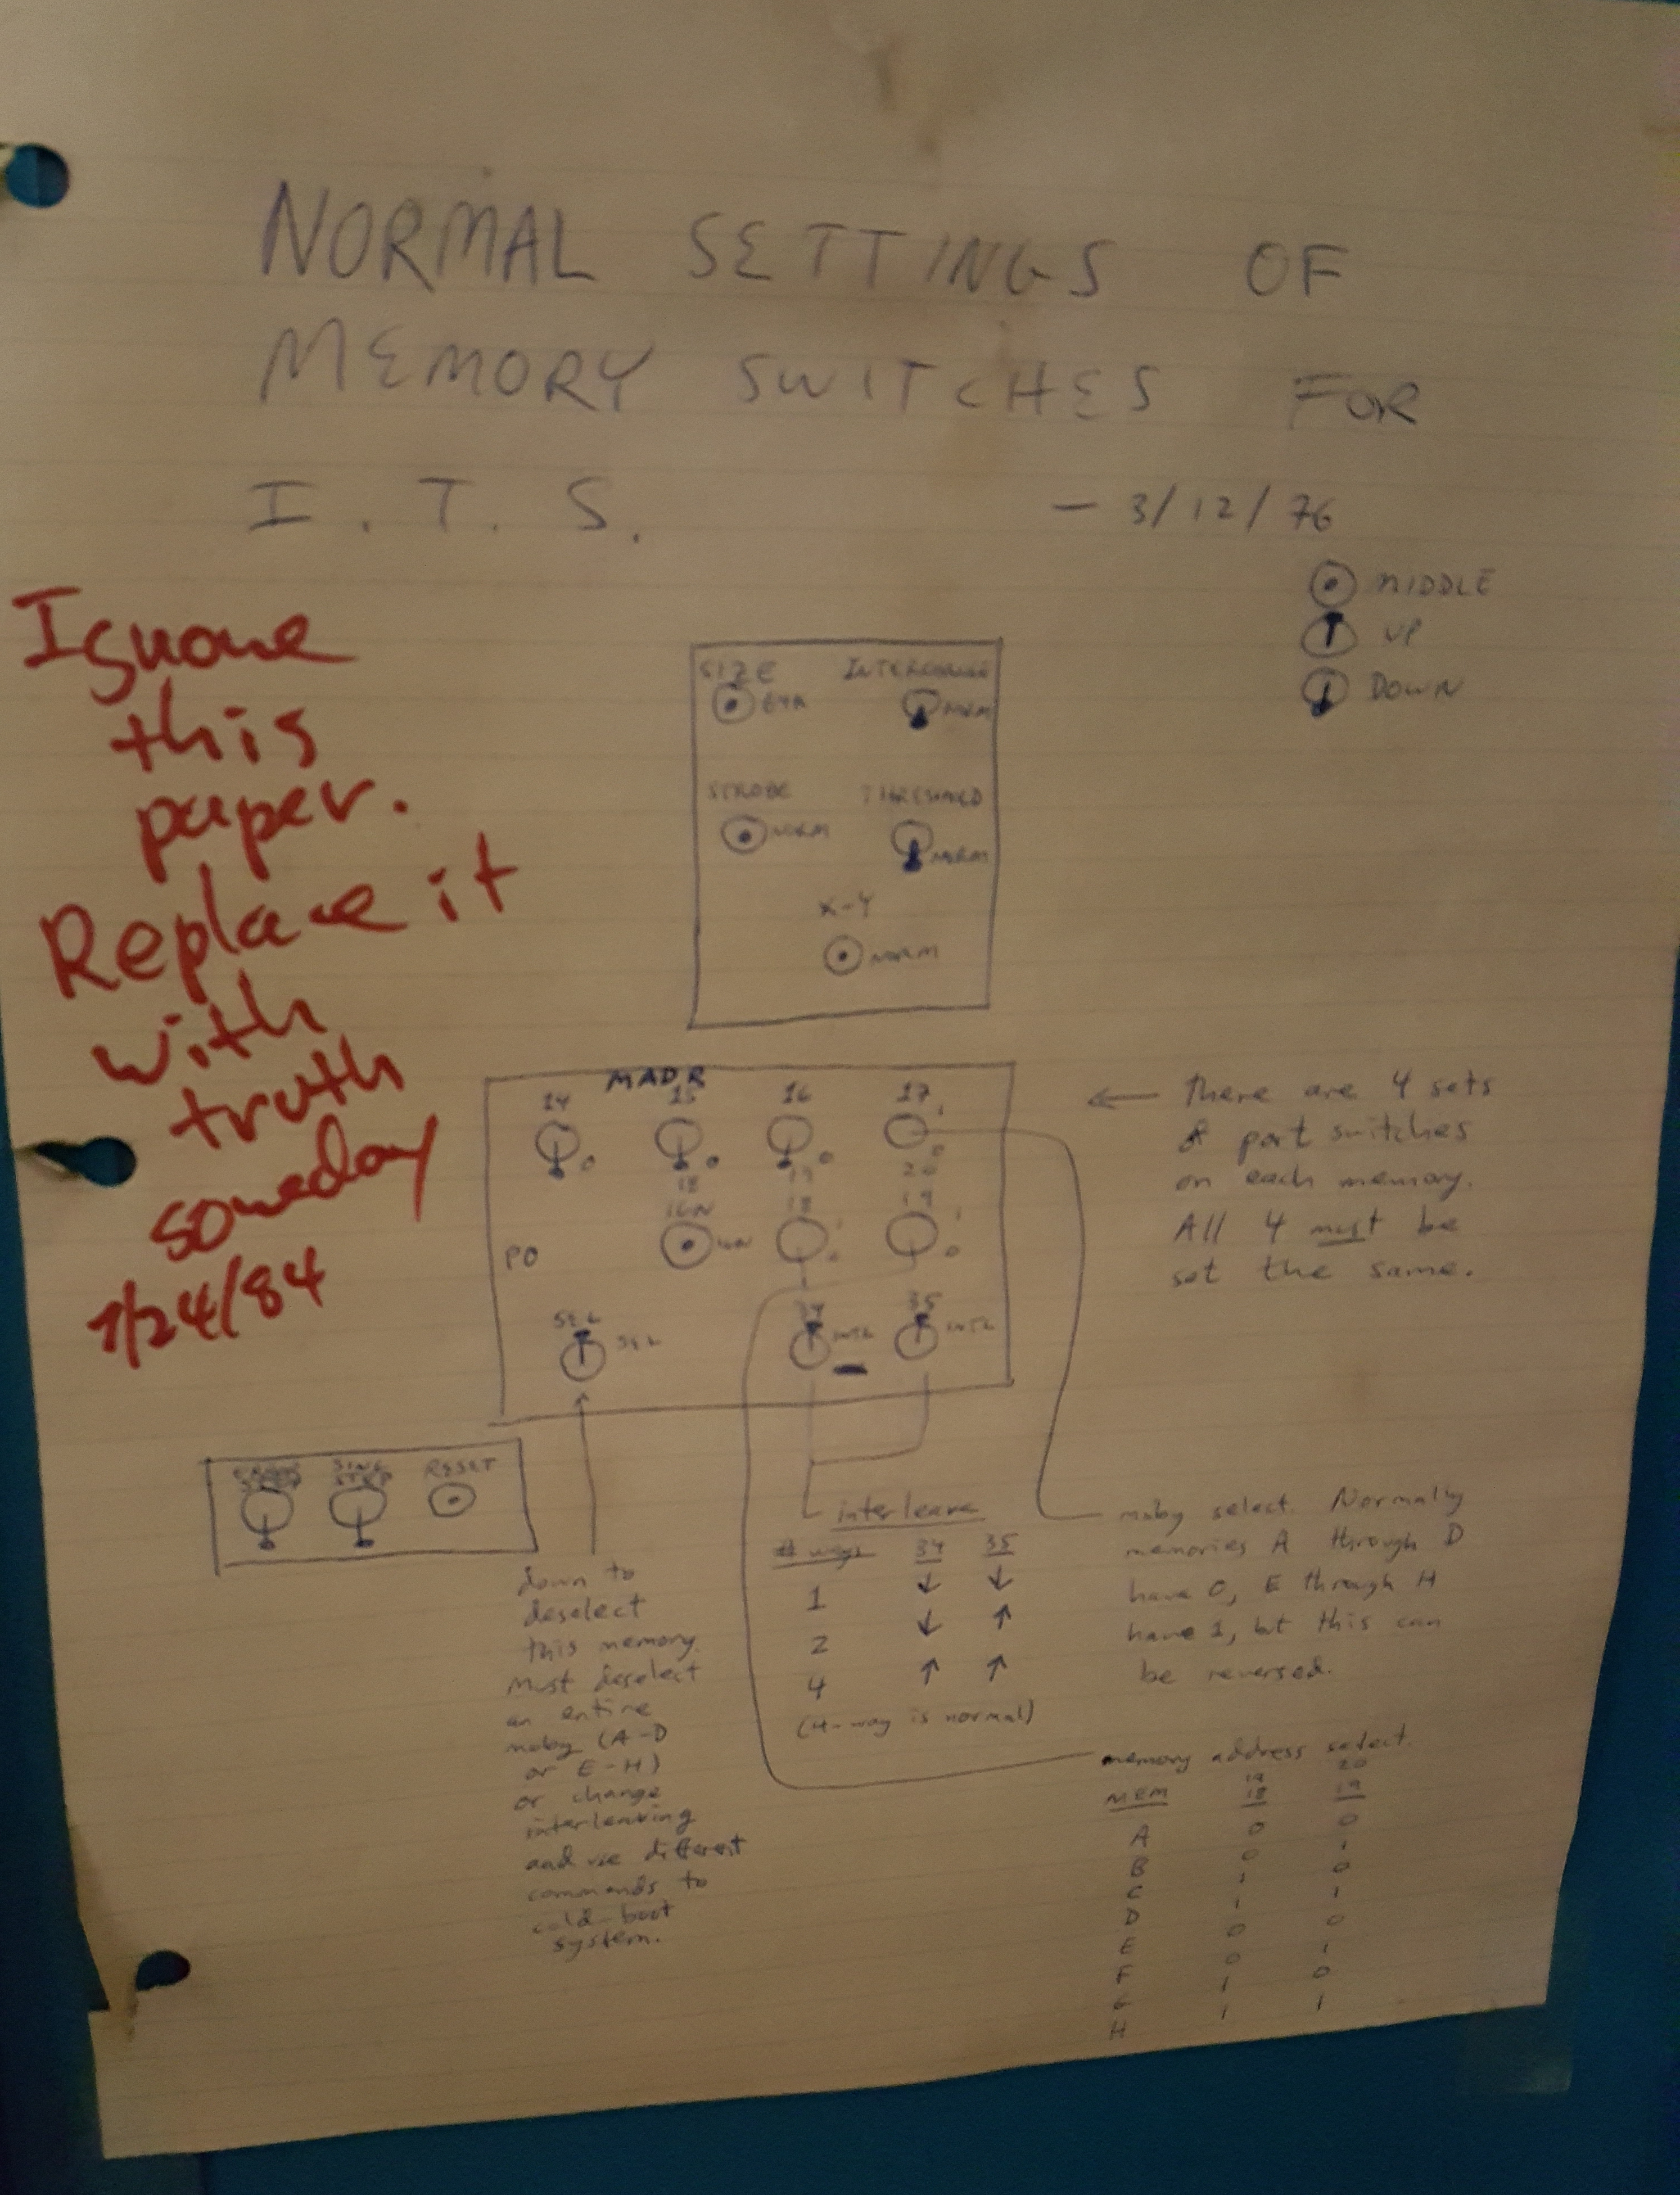 NORMAL SETTINGS OF
MEMORY SWITCHES FOR
I.T.S. — 3/12/76
MIDDLE
UP
DOWN
Ignore
this
paper.
Replace it
with
truth
someday
7/24/84
SIZE INTERCHANGE
64K NORM
STROBE THRESHOLD
NORM NORM
X-Y
NORM
MADR
14 15 16 17
1
0 0 0 0
18 19 20
16K 18 19
1 1
PO 0 0
SEL 34 35
SEL INTL INTL
← There are 4 sets
of port switches
on each memory.
All 4 must be
set the same.
STEP SING STEP RESET
down to
deselect
this memory.
Must deselect
an entire
moby (A-D
or E-H)
or change
interleaving
and use different
commands to
cold boot
system.
interleave
# ways 34 35
1 ↓ ↓
2 ↓ ↑
4 ↑ ↑
(4-way is normal)
moby select. Normally
memories A through D
have 0, E through H
have 1, but this can
be reversed.
memory address select.
19 20
MEM 18 19
A 0 0
B 0 1
C 1 0
D 1 1
E 0 0
F 0 1
G 1 0
H 1 1